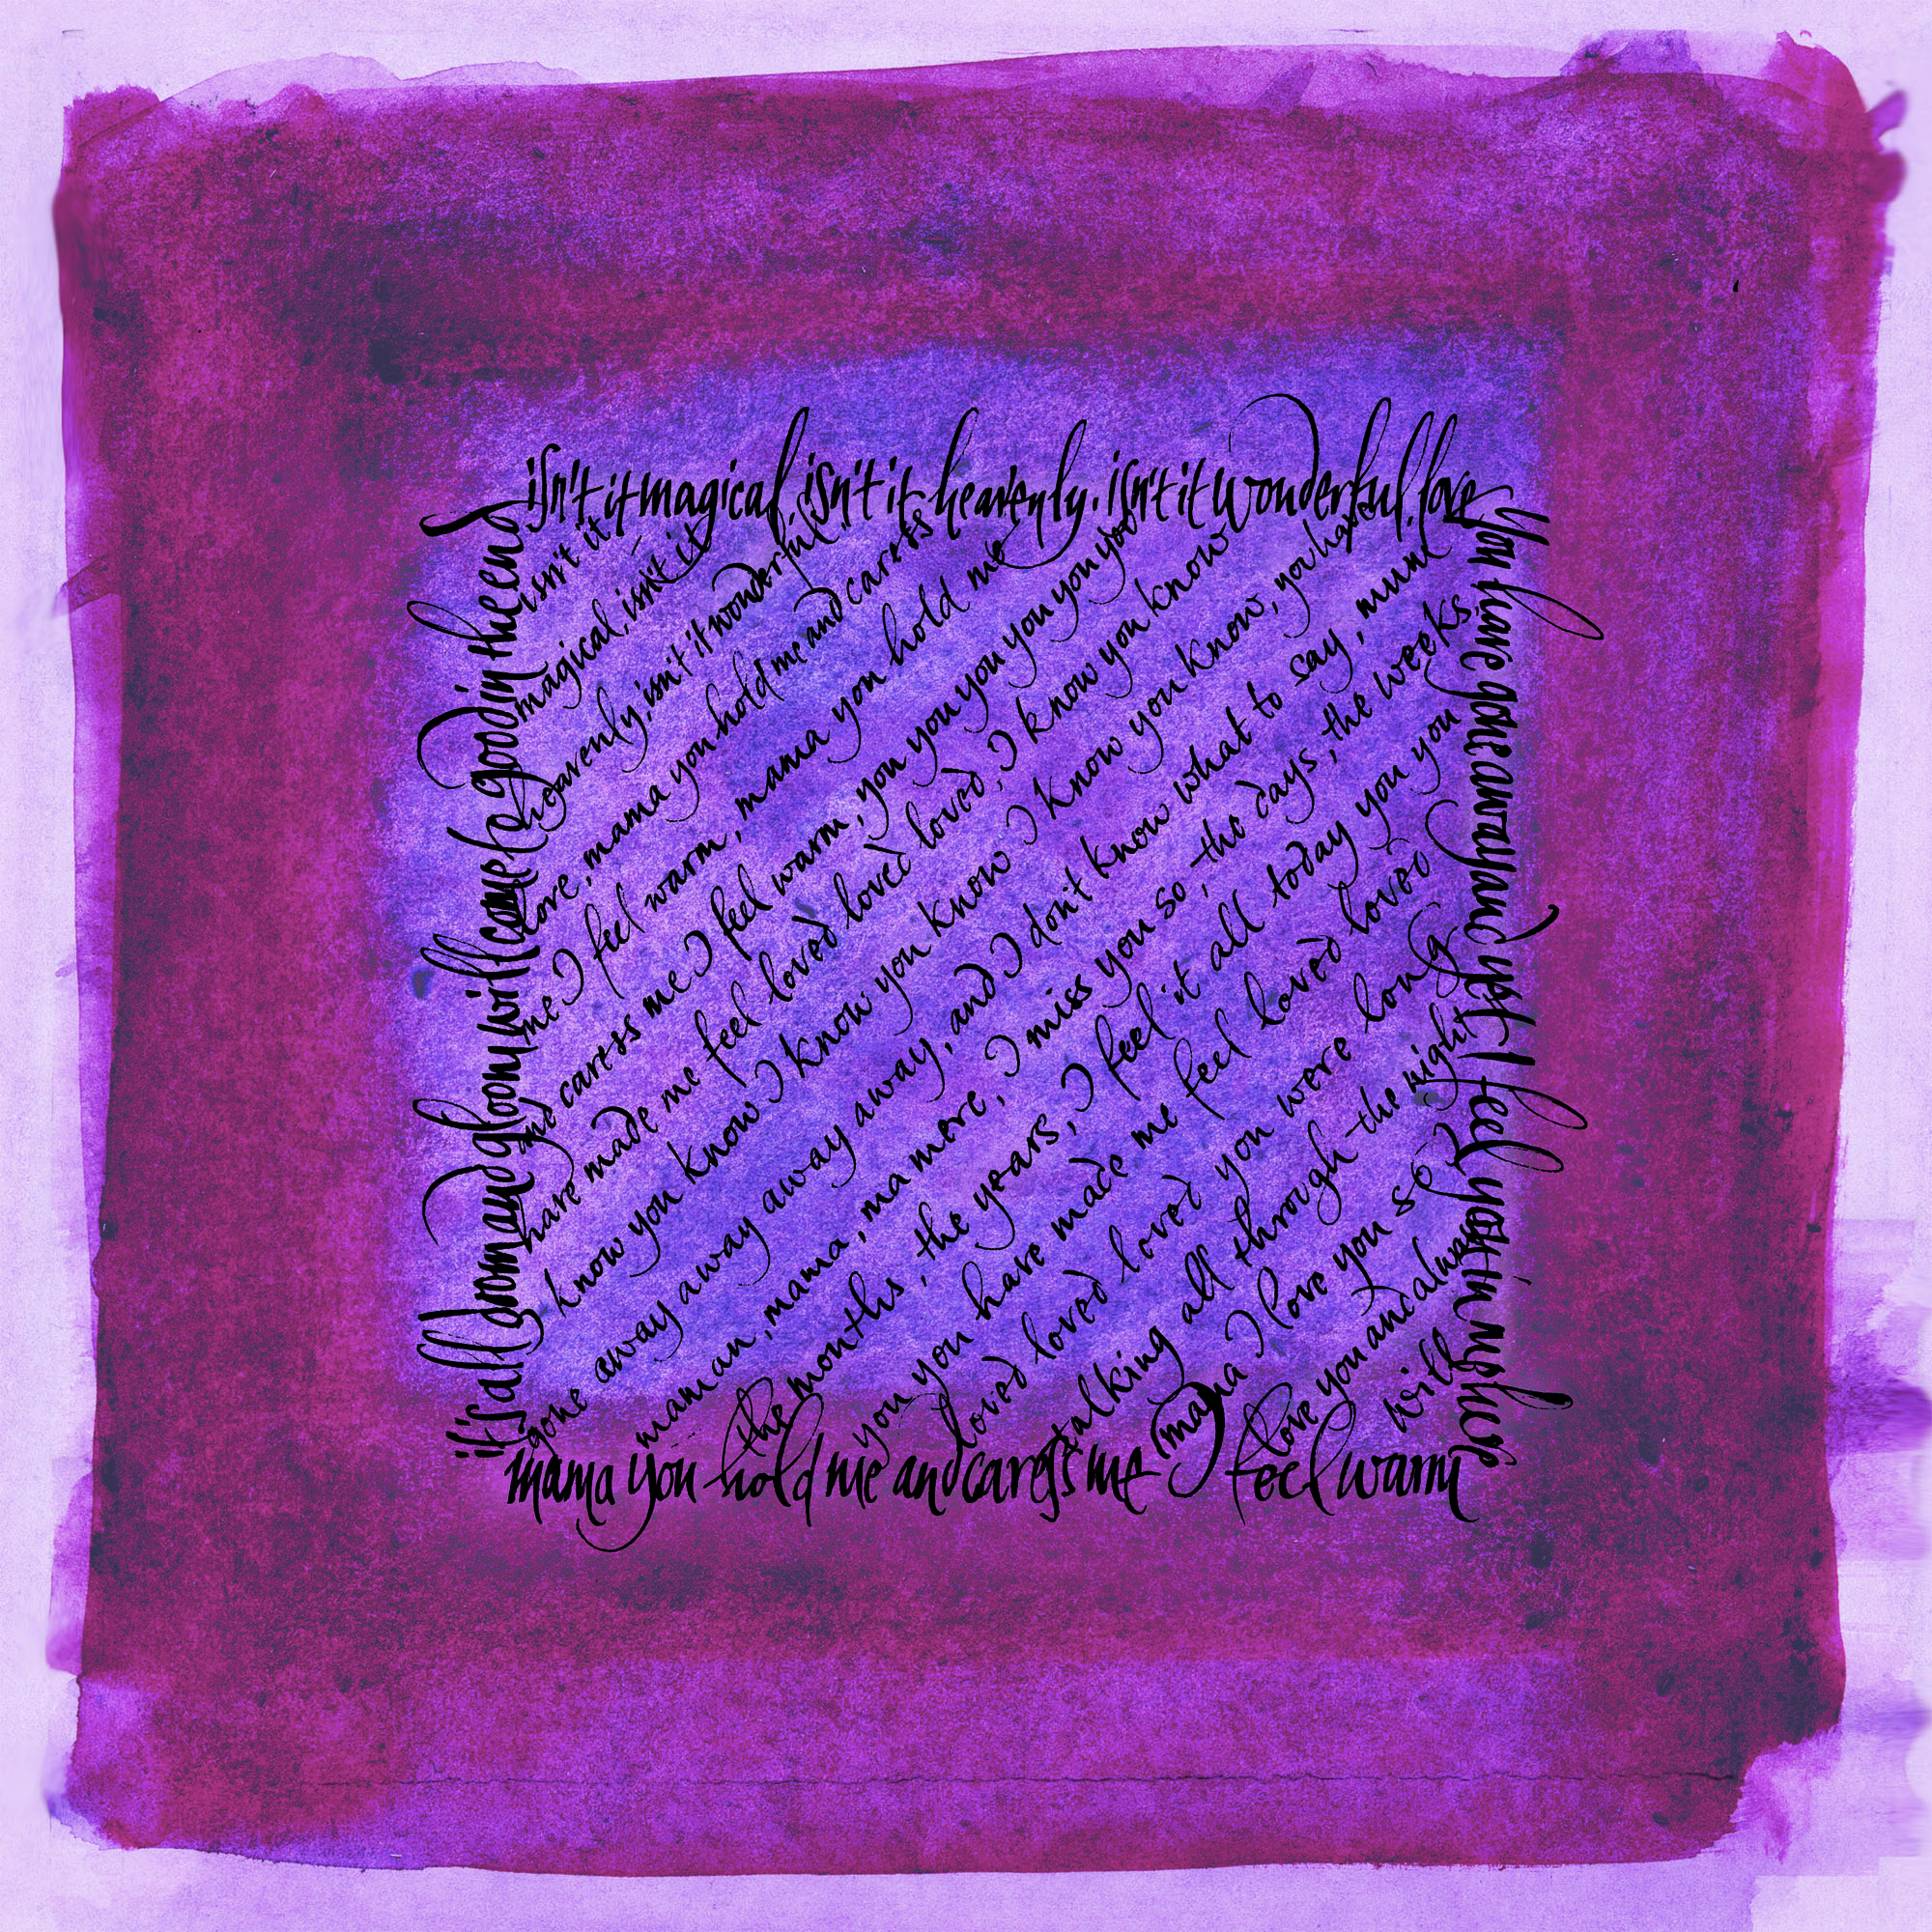 isn't it magical, isn't it heavenly. isn't it wonderful. love
you have gone away and yet I feel you in my here
mama you hold me and caress me I feel warm
it's all doom and gloom will come be good in the end
isn't it
magical, isn't it
heavenly, isn't it wonderful
love, mama you hold me and caress
me I feel warm, mama you hold me
and caress me I feel warm, you you you you you you you
have made me feel loved loved loved, I know you know
I know you know I know you know I know you know, you have
gone away away away away, and I don't know what to say, mum
maman, mama, ma mere, I miss you so, the days, the weeks,
the months, the years, I feel it all today you you
you you have made me feel loved loved
loved loved loved you were long
talking all through the night
mama I love you so I
love you and always
will